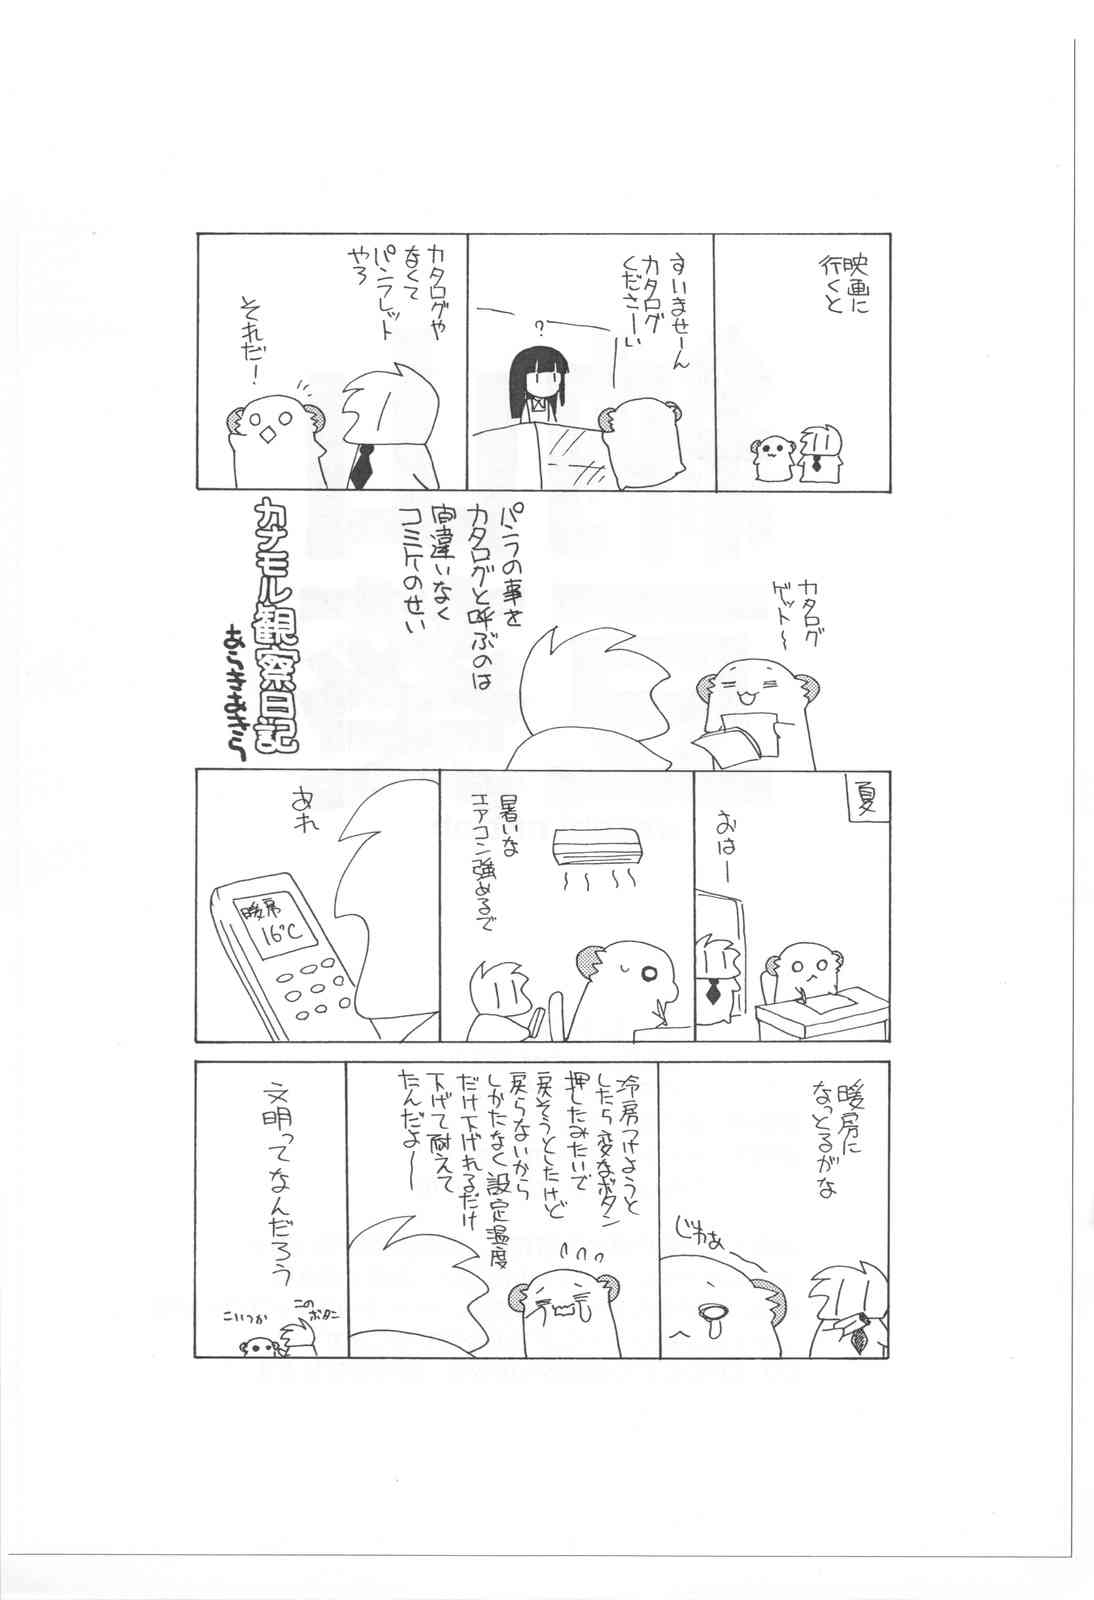 映画に
行くと
すいませーん
カタログ
くださーい
?
カタログや
なくて
パンフレット
やろ
それだ!
カタログ
ゲット～
パンフの事を
カタログと呼ぶのは
間違いなく
コミケのせい
カナモル観察日記
あらきあきら
夏
おはー
暑いな
エアコン強めるで
あれ
暖房
16℃
暖房に
なっとるがな
じわぁー
冷房つけようと
したら変なボタン
押したみたいで
戻そうとしたけど
戻らないから
しかたなく設定温度
だけ下げれるだけ
下げて耐えて
たんだよー
文明ってなんだろう
この
ボタン
こいつか